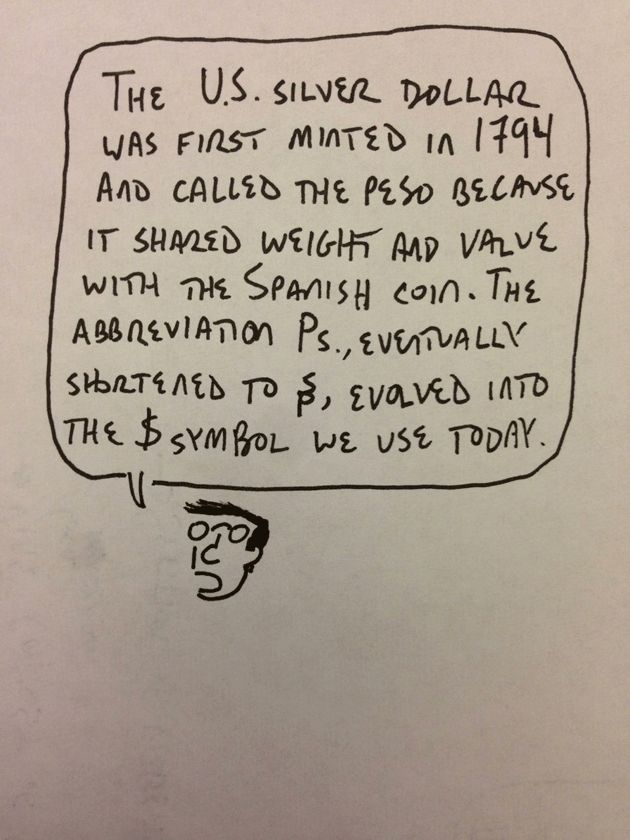 THE U.S. SILVER DOLLAR
WAS FIRST MINTED IN 1794
AND CALLED THE PESO BECAUSE
IT SHARED WEIGHT AND VALUE
WITH THE SPANISH COIN. THE
ABBREVIATION PS., EVENTUALLY
SHORTENED TO , EVOLVED INTO
THE $ SYMBOL WE USE TODAY.